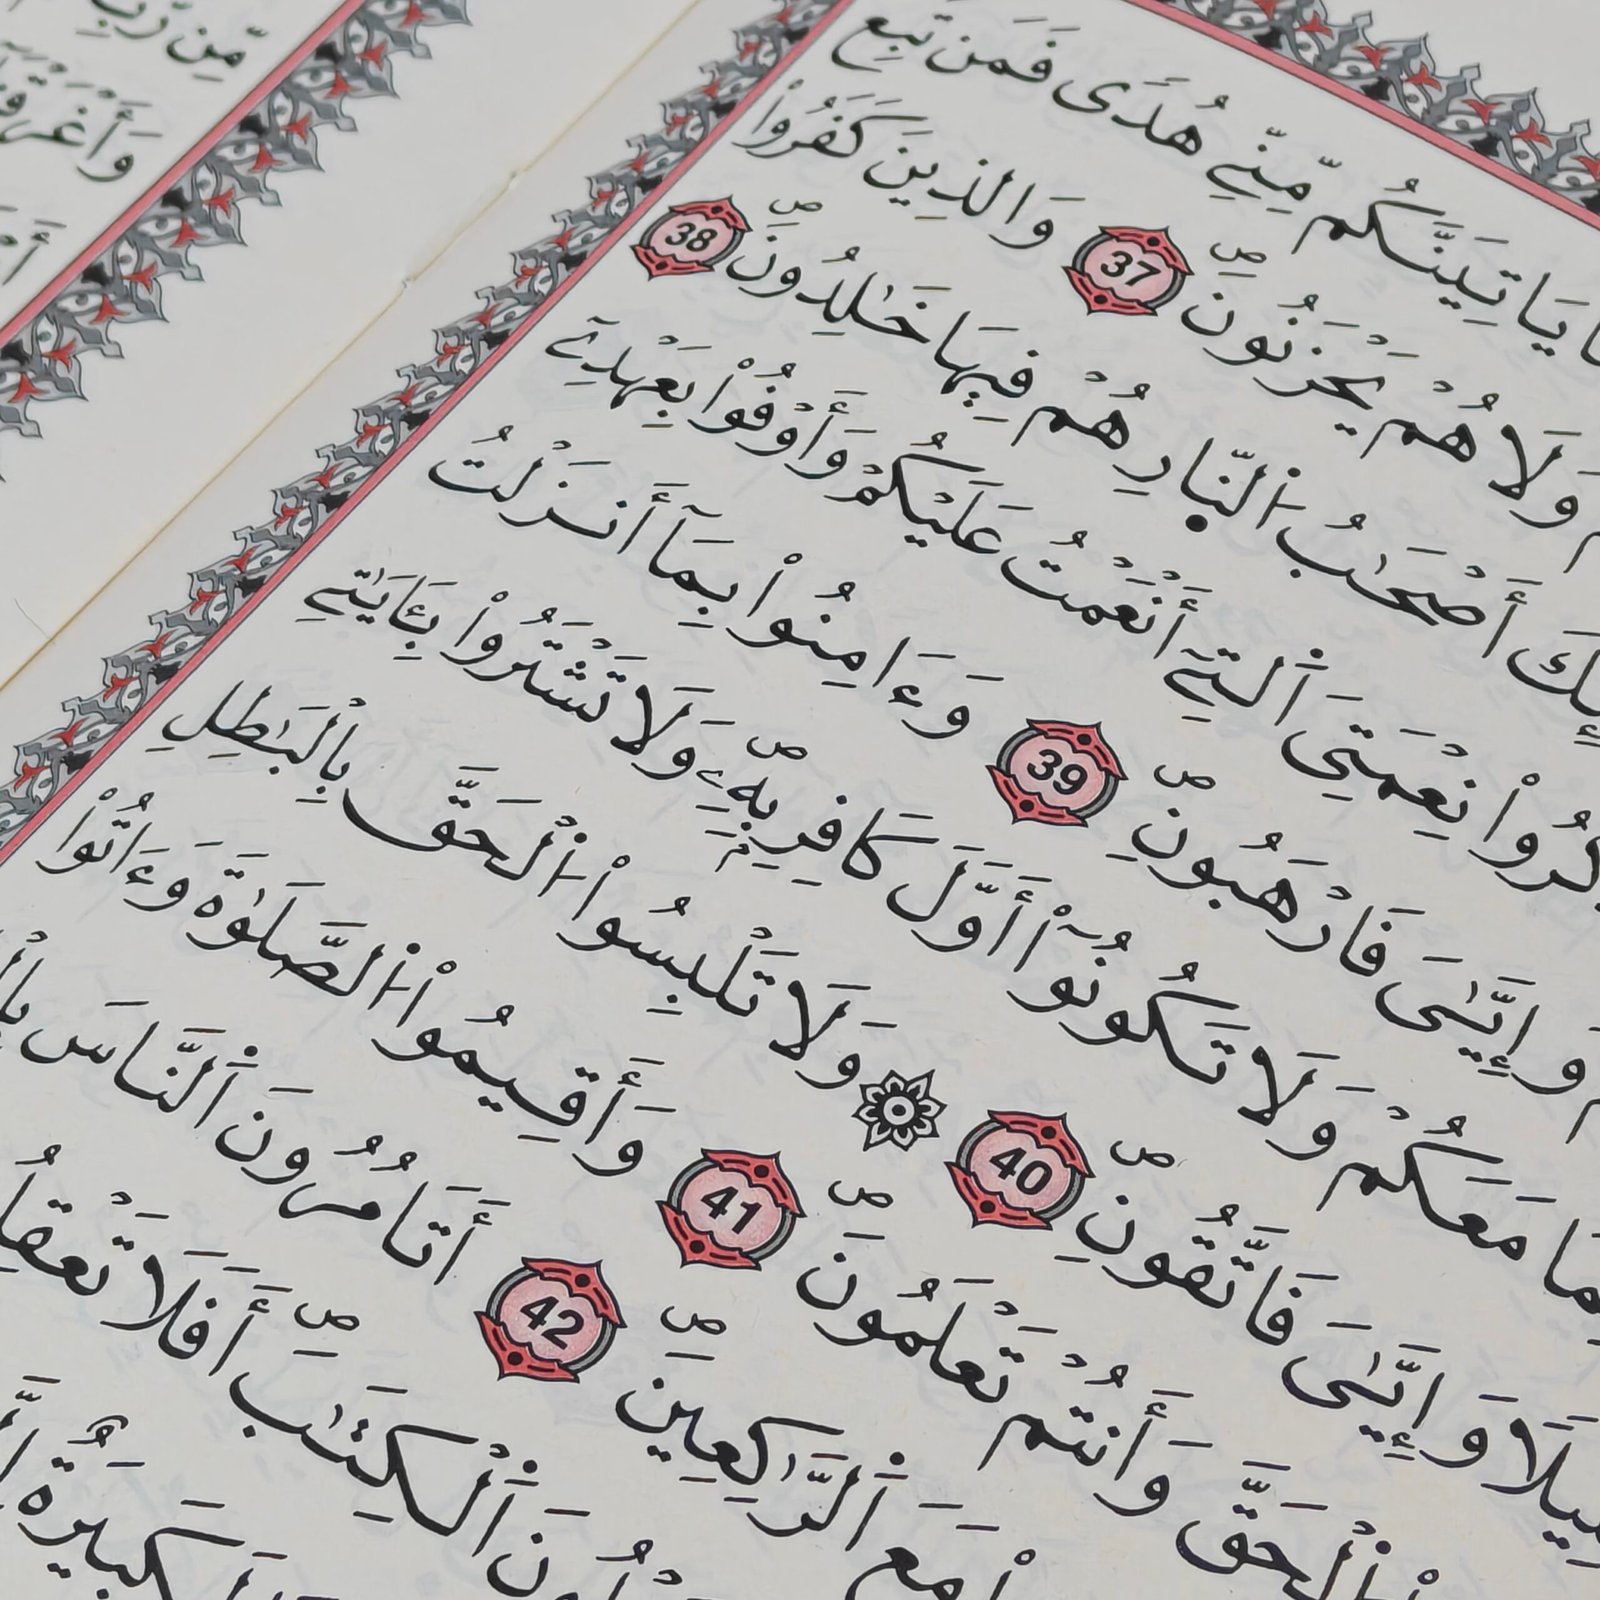 مِّن رَّبِّ
وَأَغْرَقْنَا
يَاتِيَنَّكُم مِّنِّے هُدٗى فَمَن تَبِعَ
وَلَا هُمْ يَحْزَنُونَۖ 37 وَالذِينَ كَفَرُواْ
أَصْحَٰبُ اُ۬لنّ۪ارِ هُمْ فِيهَا خَٰلِدُونَۖ 38
نِعْمَتِيَ اَ۬لتِےٓ أَنْعَمْتُ عَلَيْكُمْ وَأَوْفُواْ بِعَهْدِےٓ
وَإِيَّٰيَ فَارْهَبُونِۖ 39 وَءَامِنُواْ بِمَآ أَنزَلْتُ
مَعَكُمْ وَلَا تَكُونُوٓاْ أَوَّلَ كَافِرِۢ بِهِۦۖ وَلَا تَشْتَرُواْ بِـَٔايَٰتِے
وَإِيَّٰيَ فَاتَّقُونِۖ 40 ۞ وَلَا تَلْبِسُواْ اُ۬لْحَقَّ بِالْبَٰطِلِ
اُ۬لْحَقَّ وَأَنتُمْ تَعْلَمُونَۖ 41 وَأَقِيمُواْ اُ۬لصَّلَوٰةَ وَءَاتُواْ
مَعَ اَ۬لرَّٰكِعِينَۖ 42 أَتَامُرُونَ اَ۬لنَّاسَ
اَ۬لْكِتَٰبَۖ أَفَلَا